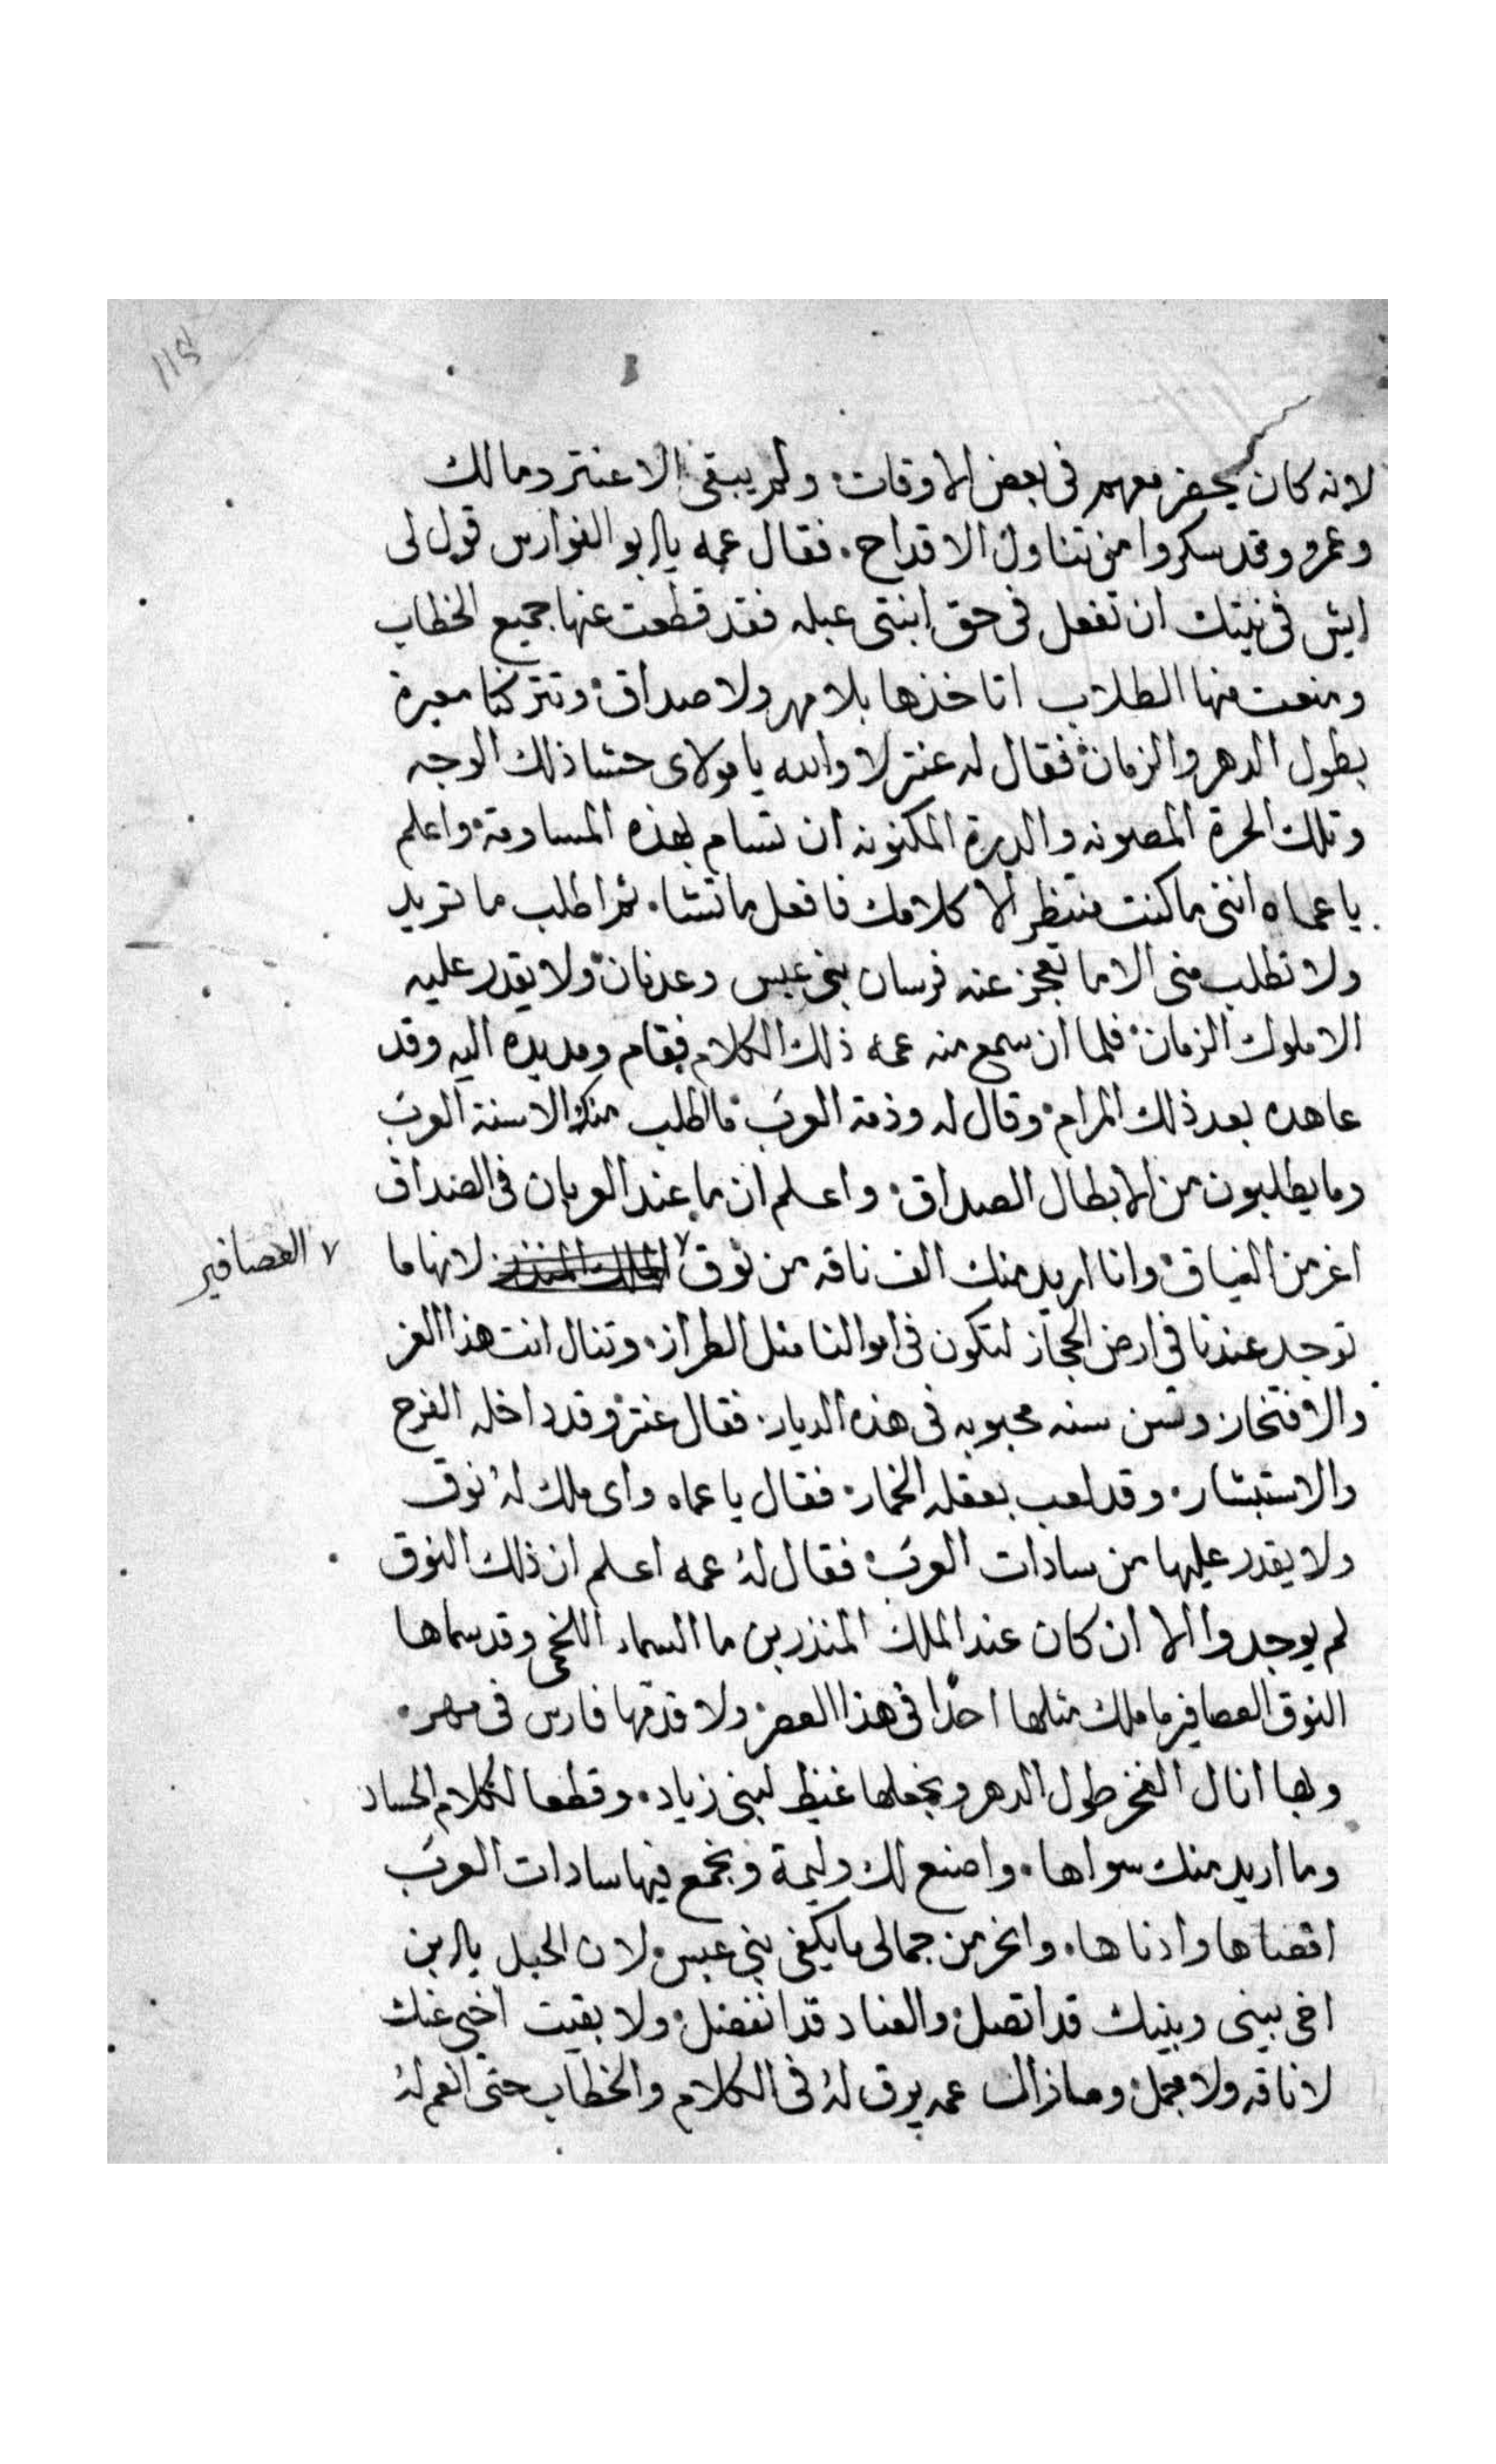 لانه كان يحضر معهم فى بعض الاوقات ولم يبقى الا عنتر ومالك
وعمرو وقد سكروا من تناول الاقداح فقال عمه يابو الفوارس قول لى
ايش فى نيتك ان تفعل فى حق ابنتى عبله فقد قطعت عنها جميع الخطاب
ومنعت منها الطلاب اتاخذها بلا مهر ولا صداق وتتركنا معيرة
بطول الدهر والزمان فقال له عنتر لا والله يا مولاى حشا ذلك الوجه
وتلك الحرة المصونه والدرة المكنونه ان تسام بهذه المساومة واعلم
يا عماه اننى ما كنت منتظر الا كلامك فافعل ما تشاء ثم اطلب ما تريد
ولا تطلب منى الا ما تعجز عنه فرسان بنى عبس وعدنان ولا يقدر عليه
الا ملوك الزمان فلما ان سمع منه عمه ذلك الكلام فقام ومد يده اليه وقد
عاهده بعد ذلك المرام وقال له وذمة العرب ما اطلب منك الا سنة العرب
وما يطلبون من الابطال الصداق واعلم ان ما عند العربان فى الصداق
اعز من النياق وانا اريد منك الف ناقه من نوق ٧ الملك المنذر لانها ما
٧ العصافير
توجد عندنا فى ارض الحجاز لتكون فى اموالنا مثل الطراز وتنال انت هذا العز
والافتخار وتسن سنه محبوبه فى هذه الديار فقال عنتر وقد داخله الفرح
والاستبشار وقد لعب بعقله الخمار فقال يا عماه واى ملك له نوق
ولا يقدر عليها من سادات العرب فقال له عمه اعلم ان ذلك النوق
لم يوجدوا الا ان كان عند الملك المنذر بن ما السماء اللخمى وقد سماها
النوق العصافير ما ملك مثلها احدًا فى هذا العصر ولا قدمها فارس فى مهر
وبها انال الفخر طول الدهر ونجعلها غيظ لبنى زياد وقطعا لكلام الحساد
وما اريد منك سواها واصنع لك وليمة ونجمع فيها سادات العرب
اقصاها وادناها وانحر من جمالى ما يكفى بنى عبس لان الحبل يا ابن
اخى بينى وبينك قد اتصل والعناد قد انفصل ولا بقيت اخبى عنك
لا ناقه ولا جمل وما زال عمه يرق له فى الكلام والخطاب حتى انعم له